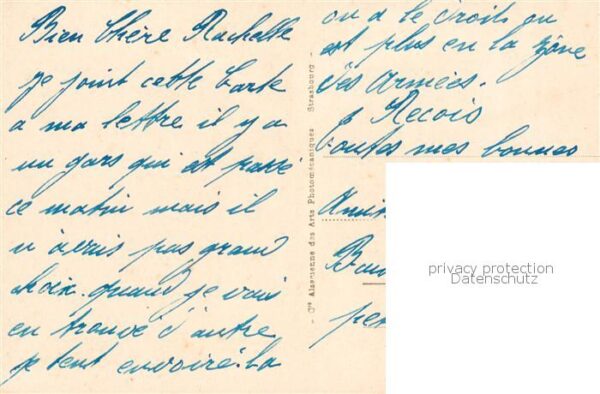 Bien Chère Rachelle
je joint cette Carte
a ma lettre il y a
un gars qui est passé
ce matin mais il
n'avais pas grand
choix. quand je vais
en trouvé d'autre
je tent envoiré. La
on a le droit on
est plus en la zone
des Armées.
Recois
toutes mes bonnes
Amit
per
Cie Alsacienne des Arts Photomécaniques - Strasbourg -
privacy protection
Datenschutz